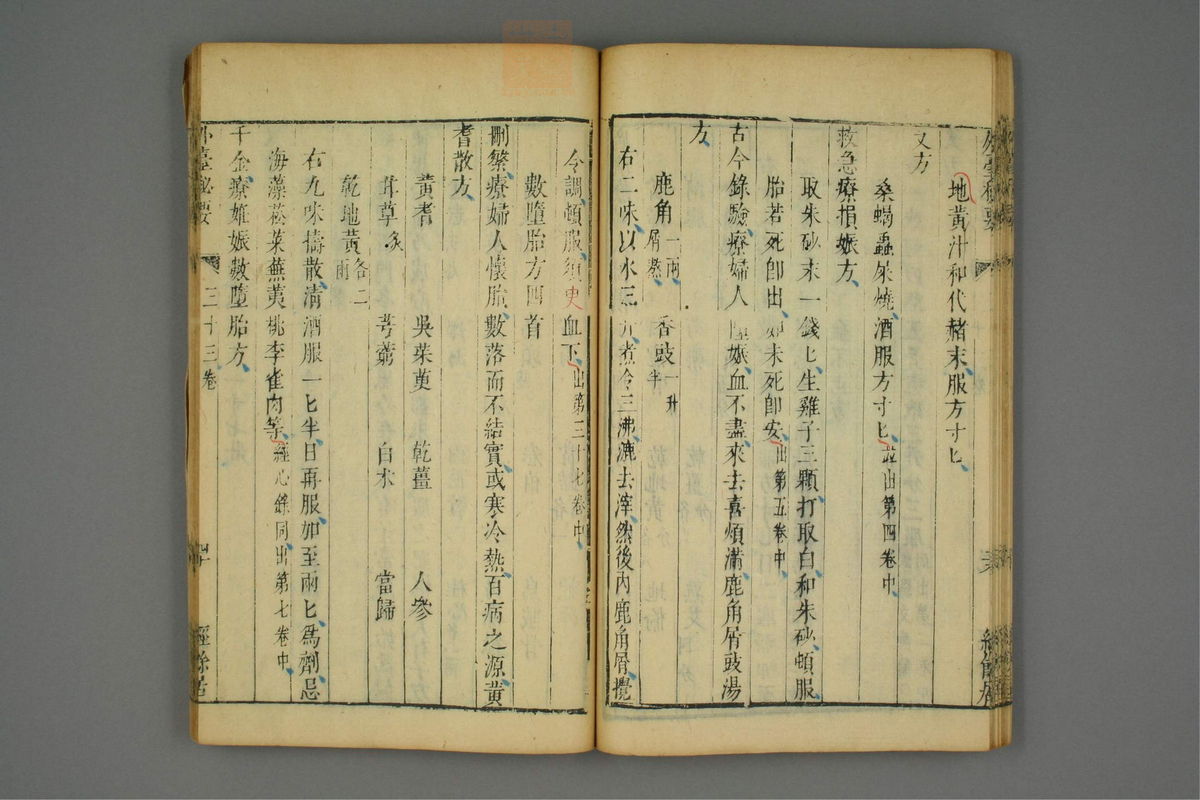 地黃汁和代赭末服方寸匕
又方
桑蝎蟲屎燒酒服方寸匕並出第四卷中
救急療損娠方
取朱砂末一錢匕生雞子三顆打取白和朱砂頓服
胎若死即出如未死即安出第五卷中
古今錄驗療婦人娠血不盡來去喜煩滿鹿角屑豉湯
方
鹿角一兩屑熬 香豉一升半
右二味以水三升煮令三沸漉去滓然後內鹿角屑攪
令調頓服須臾血下出第三十七卷中
數墮胎方四首
刪繁療婦人懷胎數落而不結實或寒冷熱百病之源黃
耆散方
黃耆 吳茱萸 乾薑 人參
甘草炙 芎藭 白朮 當歸
乾地黃各二兩
右九味擣散清酒服一匕半日再服如至兩匕爲劑忌
海藻菘菜蕪荑桃李雀肉等經心錄同出第七卷中
千金療姙娠數墮胎方
外臺秘要 三十三卷 經餘居